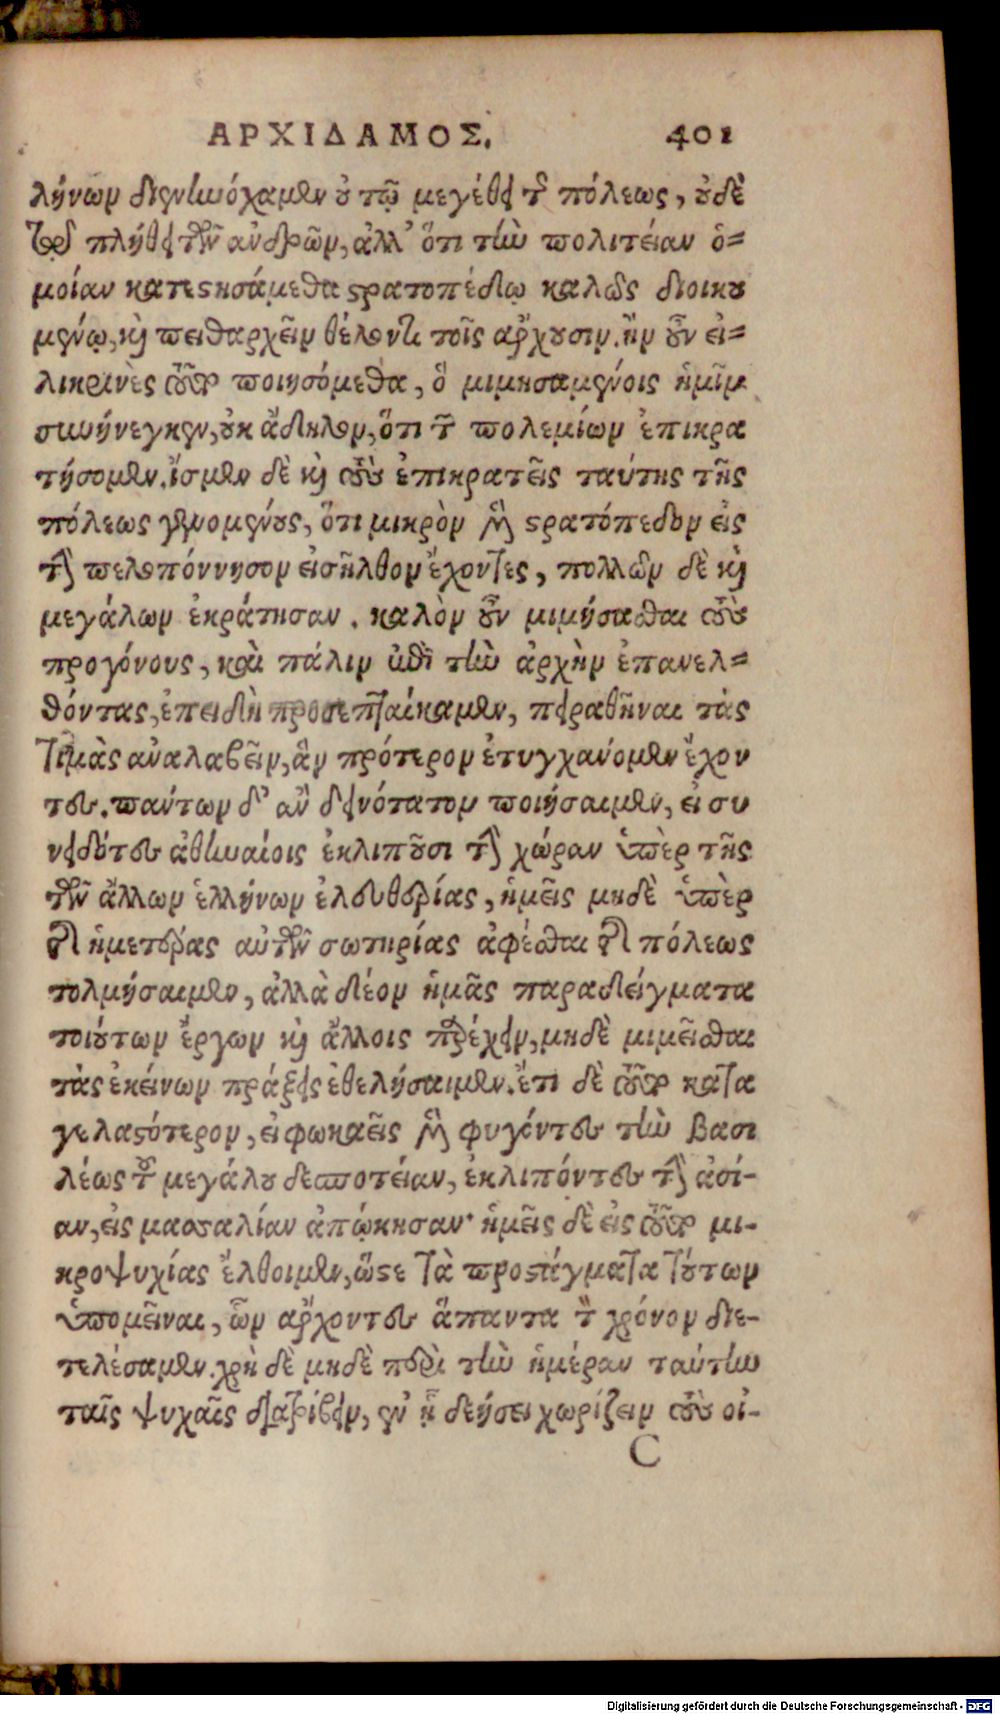 ΑΡΧΙΔΑΜΟΣ. 401
λήνων διενηνόχαμεν οὐ τῷ μεγέθει τῆς πόλεως, οὐδὲ
τῷ πλήθει τῶν ἀνδρῶν, ἀλλ' ὅτι τὴν πολιτείαν ὁ-
μοίαν κατεστησάμεθα στρατοπέδῳ καλῶς διοικου
μένῳ, καὶ πειθαρχεῖν θέλοντι τοῖς ἄρχουσιν. ἢν οὖν εἰ-
λικρινὲς τοῦτο ποιησόμεθα, ὃ μιμησαμένοις ἡμῖν
συνήνεγκεν, οὐκ ἄδηλον, ὅτι τῶν πολεμίων ἐπικρα
τήσομεν. ἴσμεν δὲ καὶ τοὺς ἐπικρατεῖς ταύτης τῆς
πόλεως γενομένους, ὅτι μικρὸν μὲν στρατόπεδον εἰς
τὴν πελοπόννησον εἰσῆλθον ἔχοντες, πολλῶν δὲ καὶ
μεγάλων ἐκράτησαν. καλὸν οὖν μιμήσασθαι τοὺς
προγόνους, καὶ πάλιν ἐπὶ τὴν ἀρχὴν ἐπανελ-
θόντας, ἐπειδὴ προσεπταίκαμεν, πειραθῆναι τὰς
τιμὰς ἀναλαβεῖν, ἃν πρότερον ἐτυγχανόμεν ἔχον
τες. πάντων δ' ἂν δεινότατον ποιήσαιμεν, εἰ συ
νειδότες ἀθηναίοις ἐκλιποῦσι τὴν χώραν ὑπὲρ τῆς
τῶν ἄλλων ἑλλήνων ἐλευθερίας, ἡμεῖς μηδὲ ὑπὲρ
τῆς ἡμετέρας αὐτῶν σωτηρίας ἀφέσθαι τῆς πόλεως
τολμήσαιμεν, ἀλλὰ δέον ἡμᾶς παραδείγματα
τοιούτων ἔργων καὶ ἄλλοις παρέχειν, μηδὲ μιμεῖσθαι
τὰς ἐκείνων πράξεις ἐθελήσαιμεν. ἔτι δὲ τοῦτο κατα
γελαστότερον, εἰ φωκαεῖς μὲν φυγόντες τὴν βασι
λέως τοῦ μεγάλου δεσποτείαν, ἐκλιπόντες τὴν ἀσί-
αν, εἰς μασσαλίαν ἀπῴκησαν· ἡμεῖς δὲ εἰς τοῦτο μι-
κροψυχίας ἔλθοιμεν, ὥστε τὰ προστάγματα τούτων
ὑπομεῖναι, ὧν ἄρχοντες ἅπαντα τὸν χρόνον διε-
τελέσαμεν. χρὴ δὲ μηδὲ περὶ τὴν ἡμέραν ταύτην
ταῖς ψυχαῖς διατρίβειν, ἐν ᾗ δεήσει χωρίζειν τοὺς οἰ-
C
Digitalisierung gefördert durch die Deutsche Forschungsgemeinschaft - DFG